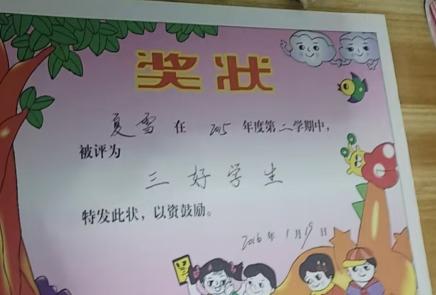 奖状
夏雪 在 2015 年度第二学期中,
被评为
三好学生
特发此状，以资鼓励。
2016年1月19日